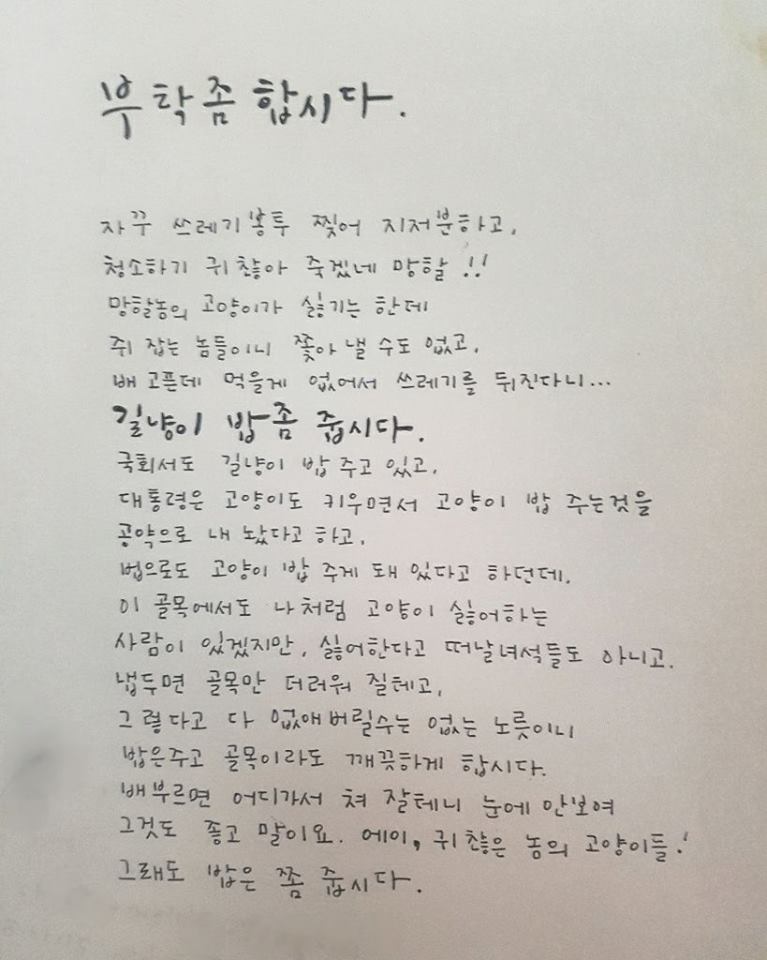 부탁좀 합시다.
자꾸 쓰레기봉투 찢어 지저분하고,
청소하기 귀찮아 죽겠네 망할 !!
망할놈의 고양이가 싫기는 한데
쥐 잡는 놈들이니 쫓아 낼 수도 없고,
배 고픈데 먹을게 없어서 쓰레기를 뒤진다니...
길냥이 밥좀 줍시다.
국회서도 길냥이 밥 주고 있고,
대통령은 고양이도 키우면서 고양이 밥 주는것을
공약으로 내 놨다고 하고,
법으로도 고양이 밥 주게 돼 있다고 하던데,
이 골목에서도 나처럼 고양이 싫어하는
사람이 있겠지만, 싫어한다고 떠날녀석들도 아니고.
냅두면 골목만 더러워 질테고,
그렇다고 다 없애버릴수는 없는 노릇이니
밥은주고 골목이라도 깨끗하게 합시다.
배부르면 어디가서 쳐 잘테니 눈에 안보여
그것도 좋고 말이요. 에이, 귀찮은 놈의 고양이들!
그래도 밥은 쫌 줍시다.